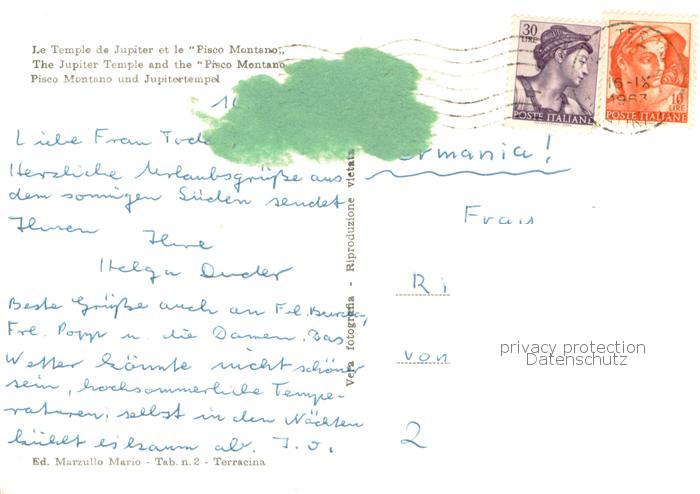 Le Temple de Jupiter et le "Pisco Montano„
The Jupiter Temple and the "Pisco Montano
Pisco Montano und Jupitertempel
30
LIRE
POSTE ITALIANE
10
LIRE
POSTE ITALIANE
16-IX
1963
Liebe Frau
Herzliche Urlaubsgrüße aus
dem sonnigen Süden sendet
Ihnen
Ihre
Helga
Beste Grüße auch an Frl.
Frl. Popp u. die Damen. Das
Wetter könnte nicht schöner
sein, hochsommerliche Tempe-
raturen; selbst in den Nächten
kühlt es kaum ab. D. O.
Ed. Marzullo Mario - Tab. n. 2 - Terracina
Vera fotografia - Riproduzione vietata
ermania!
Frau
Ri
von
2
privacy protection
Datenschutz